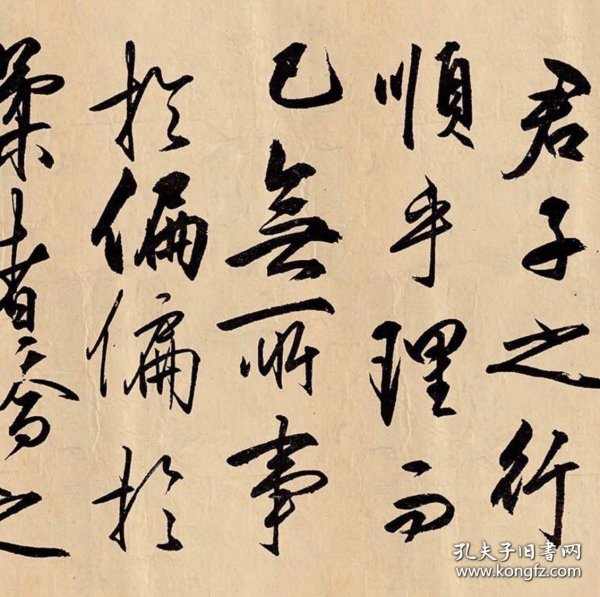 君子之行
順乎理而
已無所事
於偏偏於
柔者喬之
孔夫子旧书网
www.kongfz.com